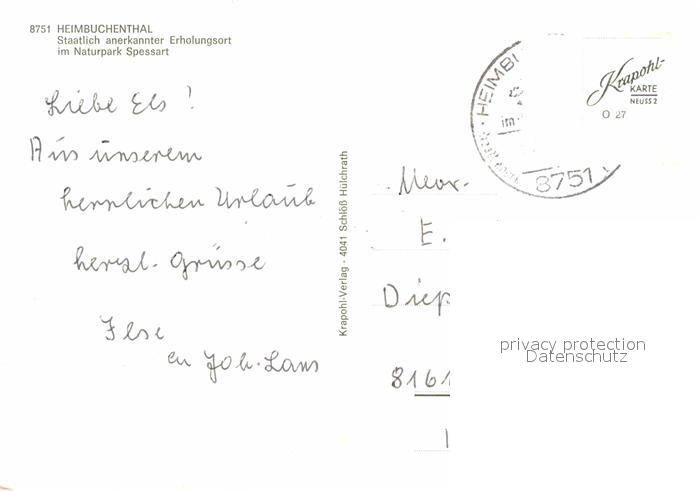 8751 HEIMBUCHENTHAL
Staatlich anerkannter Erholungsort
im Naturpark Spessart
Liebe Els!
Aus unserem
herrlichen Urlaub
herzl. Grüsse
Ilse
en Joh. Lans
Krapohl-Verlag - 4041 Schlöß Hülchrath
HEIMBU
im
8751
Krapohl-
KARTE
NEUSS 2
O 27
Mevr.
E.
Diep
8161
privacy protection
Datenschutz